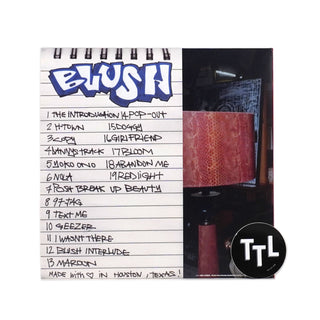 BLUSH
1 THE INTRODUCTION 14 POP-OUT
2 H-TOWN 15 DOGGY
3 COPY 16 GIRLFRIEND
17 BLOOM
5 YOKO ONO 18 ABANDON ME
6 NOLA 19 RED LIGHT
7 POST BREAK UP BEAUTY
8 97 JAG
9 TEXT ME
10 GEEZER
11 I WASN'T THERE
12 BLUSH INTERLUDE
13 MAROON
MADE WITH ♡ IN HOUSTON, TEXAS!
TTL